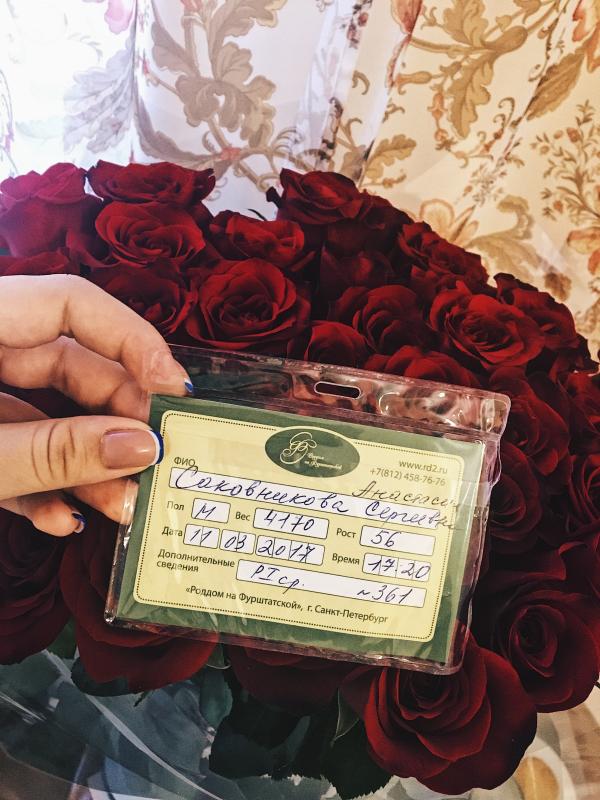 Роддом
на Фурштатской
www.rd2.ru
+7(812) 458-76-76
ФИО Саковникова Анастасия
Сергеевна
Пол М Вес 4170 Рост 56
Дата 11 03 2017 Время 17:20
Дополнительные сведения РIср. №361
«Роддом на Фурштатской», г. Санкт-Петербург